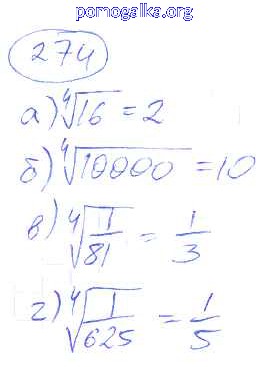 pomogalka.org
274
а) ⁴√16 = 2
б) ⁴√10000 = 10
в) ⁴√(1/81) = 1/3
г) ⁴√(1/625) = 1/5